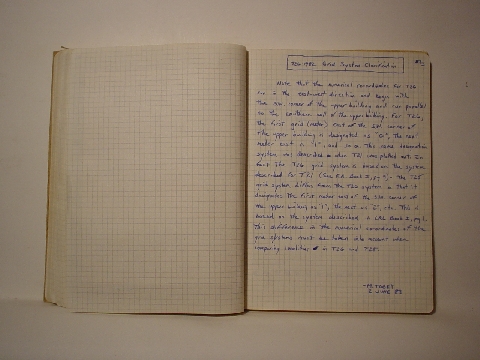 T26 1982 Grid System Clarification
Note that the numerical coordinates for T26
run in the east-west direction and begin with
the NW. corner of the upper building and run parallel
to the northern wall of the upper building. For T26,
the first grid (meter) east of the NW corner of
the upper building is designated as "0", the next
meter east is "1", and so on. This same
system was described
fact the T26 grid system is based on the system
described for T21 (See Book 2, pg.
grid system differs from the T26 system in that it
designates the first meter east of the NW corner of
the upper building as "1", the next as "2", etc. This is
based on the system described in Book 2, pg.
This difference in the numerical coordinates of the
grid systems must be taken into account when
comparing in T26 and T25.
2 JUNE 83